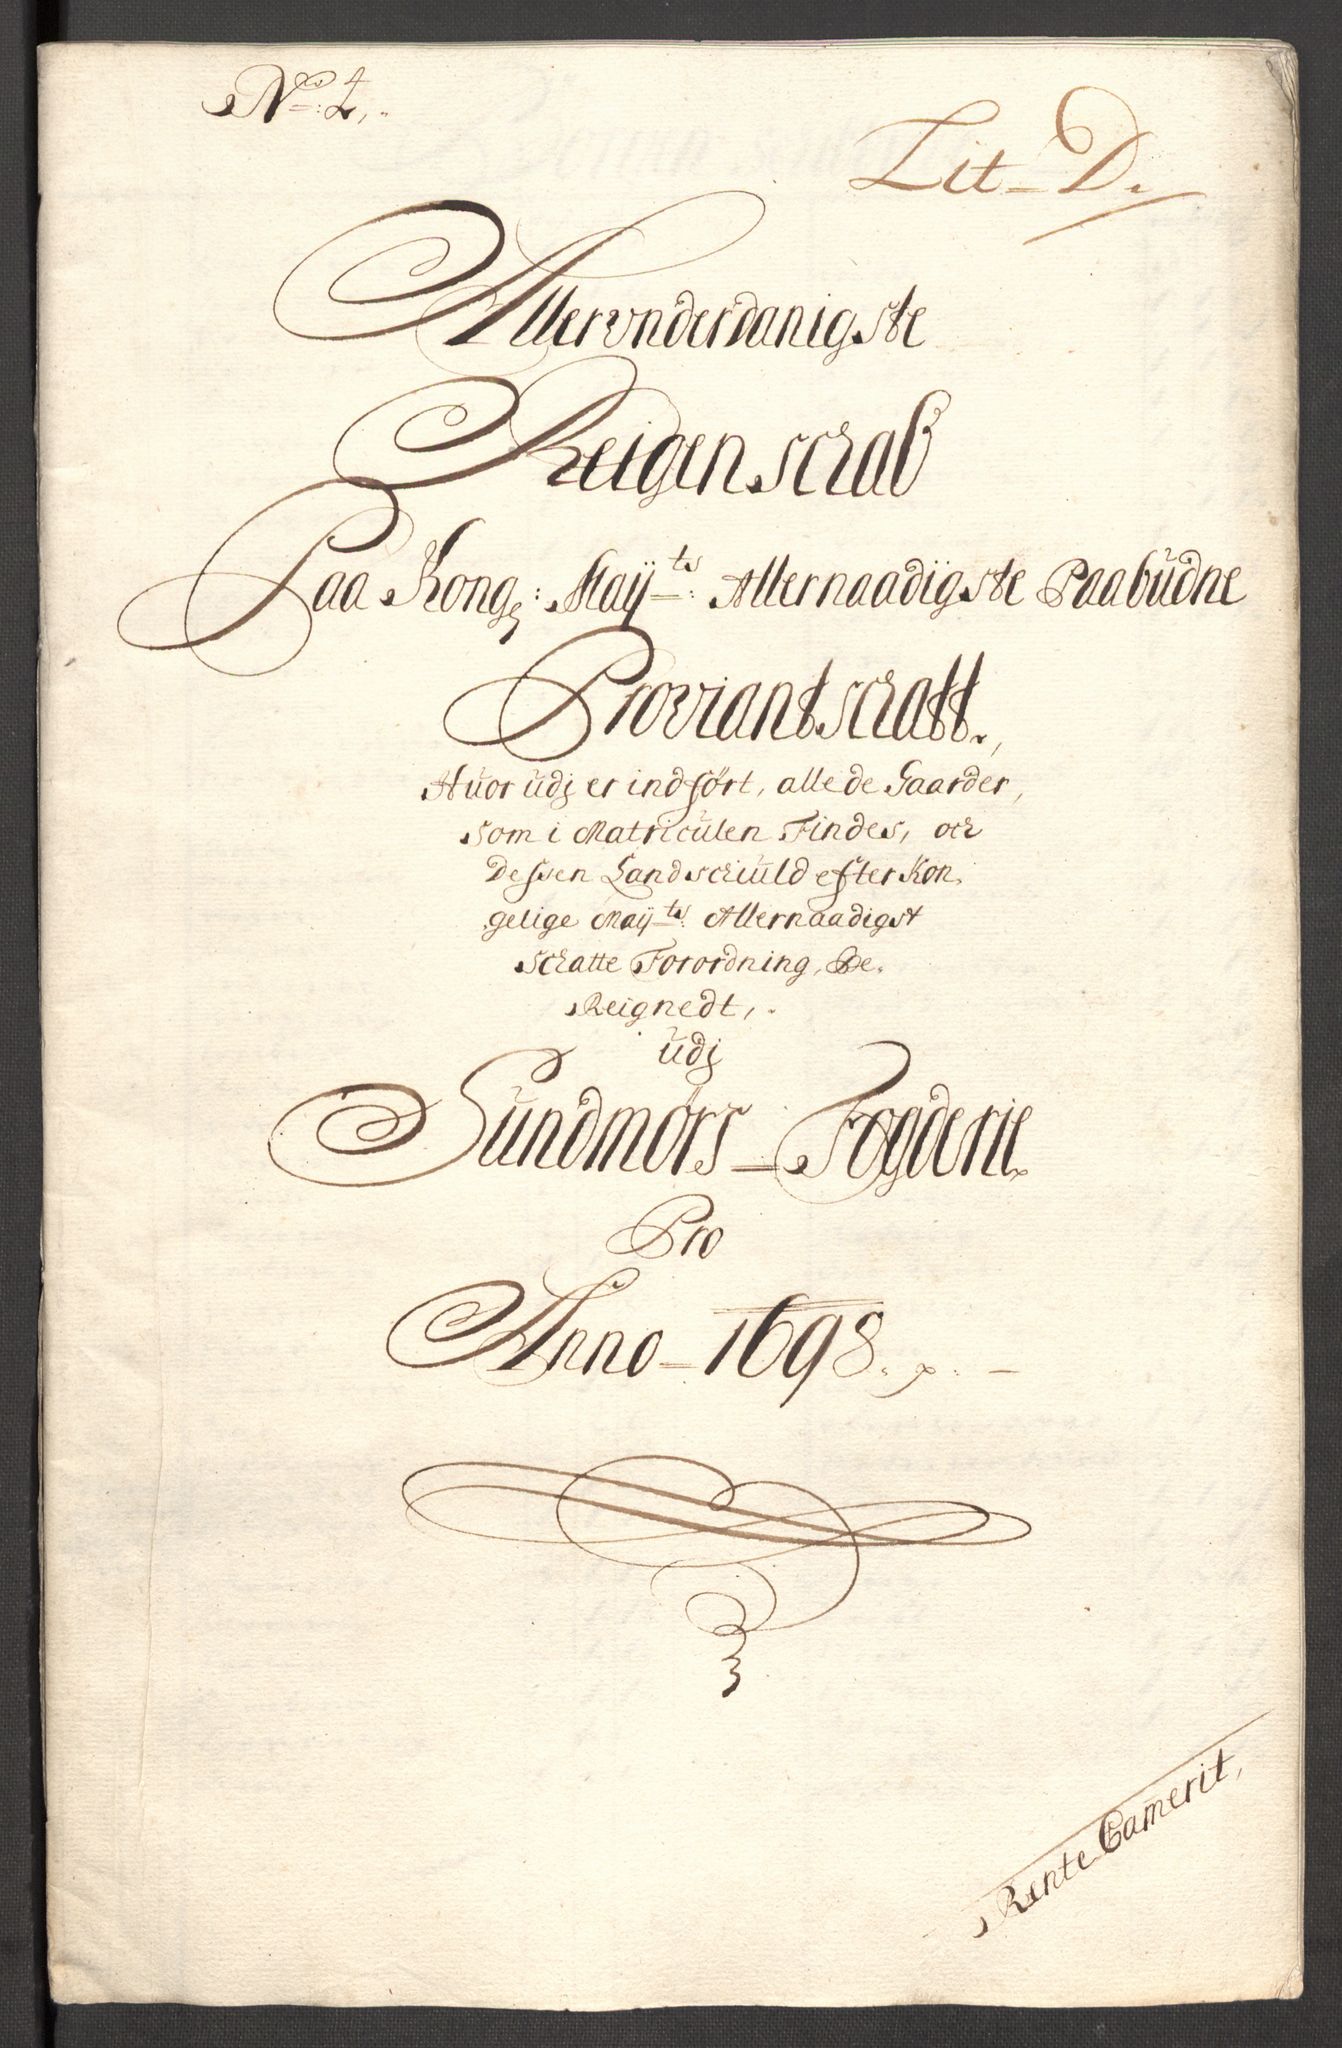 No: 4,.
Lit-D.
Allervnderdanigste
Reigenschab
Paa Kong: Maÿts: Allernaadigste Paabŭdne
Proviantschatt.,
Hŭorŭdj er indført, alle de Gaarder,
som i Matricŭlen Findes, och
Dessen Landschiŭld efter Kon,
gelige Maÿts: Allernaadigst
Schatte Forordning, Be,
Reignedt,.
ŭdj
Sŭndmørs-Fogderie
Pro
Anno-1698.
Rente Camerit,